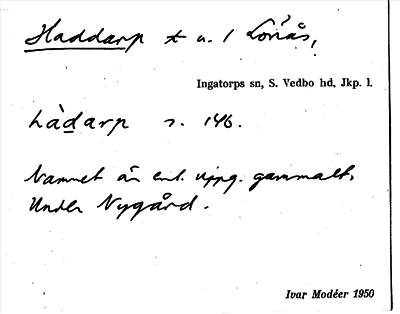 Haddarp t u. 1 Lonås,
Ingatorps sn, S. Vedbo hd, Jkp. l.
hàdarp s. 146.
Namnet är enl. uppg. gammalt.
Under Nygård.
Ivar Modéer 1950